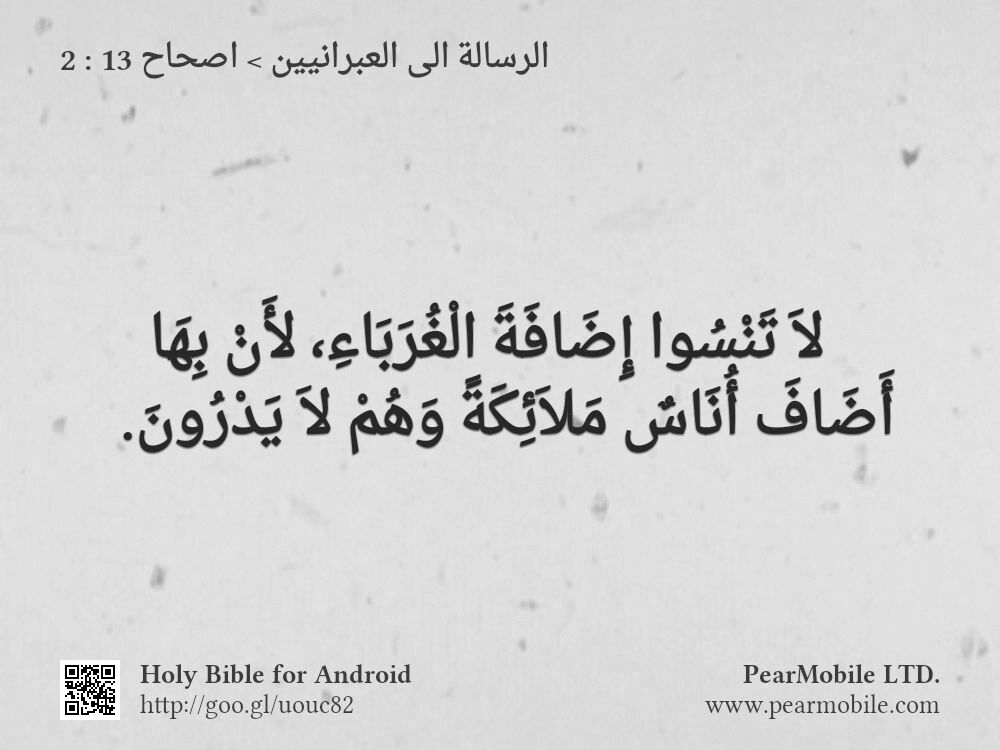 الرسالة الى العبرانيين > اصحاح 13 : 2
لاَ تَنْسُوا إِضَافَةَ الْغُرَبَاءِ، لأَنْ بِهَا
أَضَافَ أُنَاسٌ مَلاَئِكَةً وَهُمْ لاَ يَدْرُونَ.
Holy Bible for Android
http://goo.gl/uouc82
PearMobile LTD.
www.pearmobile.com